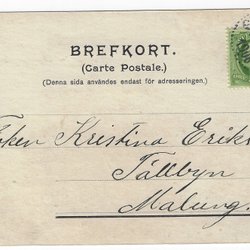 BREFKORT.
(Carte Postale.)
(Denna sida användes endast för adresseringen.)
Kristina Eriks
Tällbyn
Malung